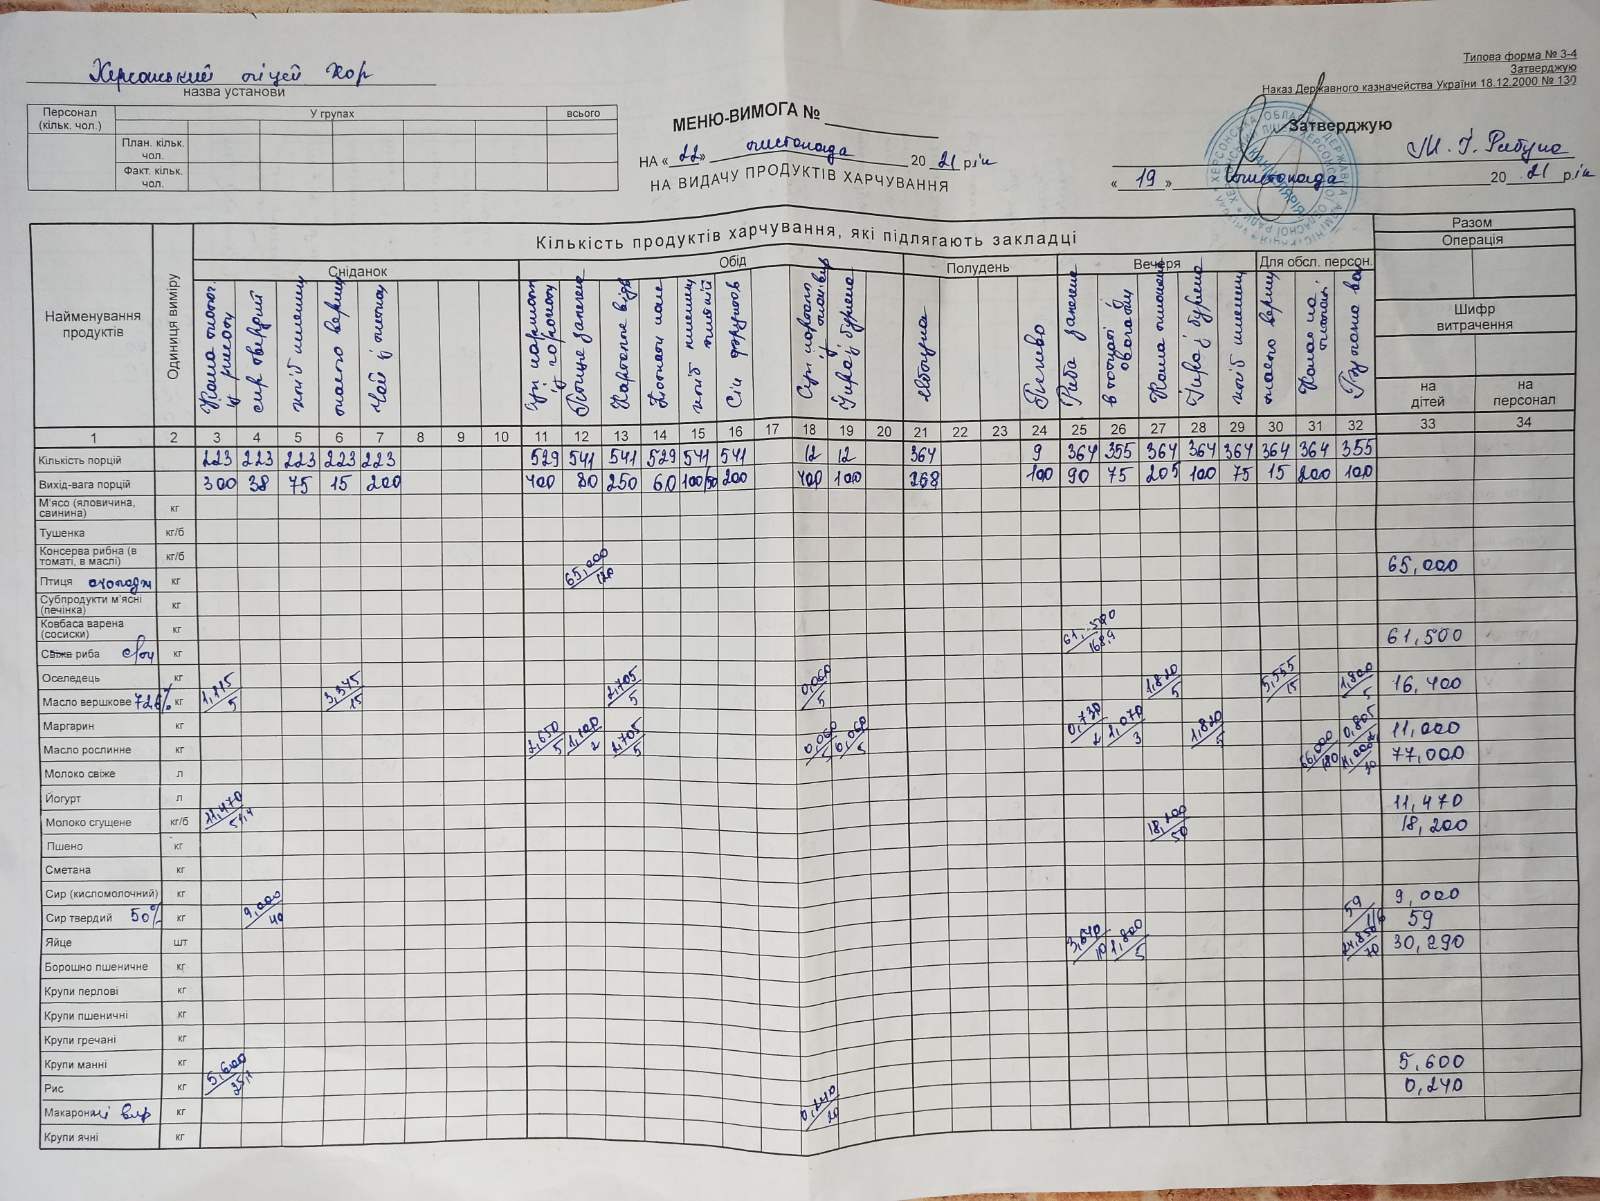 Типова форма № 3-4
Затверджую
Наказ Державного казначейства України 18.12.2000 № 130
Херсонський ліцей ХОР
назва установи
Персонал (кільк. чол.) У групах всього
План. кільк. чол.
Факт. кільк. чол.
МЕНЮ-ВИМОГА №
НА «22» листопада 2021 рік
НА ВИДАЧУ ПРОДУКТІВ ХАРЧУВАННЯ
Затверджую
«19» листопада 2021 рік
Найменування продуктів
Одиниця виміру
Кількість продуктів харчування, які підлягають закладці
Разом
Операція
Сніданок Обід Полудень Вечеря Для обсл. персон.
Шифр витрачення
на дітей на персонал
сир твердий
масло верш
Птиця запечена
яблуко
Печиво
Риба запечена
1 2 3 4 5 6 7 8 9 10 11 12 13 14 15 16 17 18 19 20 21 22 23 24 25 26 27 28 29 30 31 32 33 34
Кількість порцій 223 223 223 223 223 529 541 541 529 541 541 12 12 364 9 364 355 364 364 364 364 364 355
Вихід-вага порцій 300 38 75 15 200 400 80 250 60 100/50 200 400 100 268 100 90 75 205 100 75 15 200 100
М'ясо (яловичина, свинина) кг
Тушенка кг/б
Консерва рибна (в томаті, в маслі) кг/б
Птиця охолодж кг 65,000/120 65,000
Субпродукти м'ясні (печінка) кг
Ковбаса варена (сосиски) кг
Свіже риба с/м кг 61,500/168,9 61,500
Оселедець кг
Масло вершкове 72,6% кг 1,115/5 3,345/15 2,705/5 0,060/5 1,820/5 5,555/15 1,800/5 16,400
Маргарин кг
Масло рослинне кг 2,650/5 1,100/2 2,705/5 0,060/5 0,060/5 0,730/2 1,070/3 1,820/5 0,805 11,000
Молоко свіже л 66,000/180 11,000/30 77,000
Йогурт л
Молоко сгущене кг/б 11,470/51,4 11,470
Пшено кг 18,200/50 18,200
Сметана кг
Сир (кисломолочний) кг
Сир твердий 50% кг 9,000/40 9,000
Яйце шт 59/1/6 59
Борошно пшеничне кг 3,640/10 1,800/5 24,850/70 30,290
Крупи перлові кг
Крупи пшеничні кг
Крупи гречані кг
Крупи манні кг
Рис кг 5,600/25,1 5,600
Макаронні вир кг 0,240/20 0,240
Крупи ячні кг